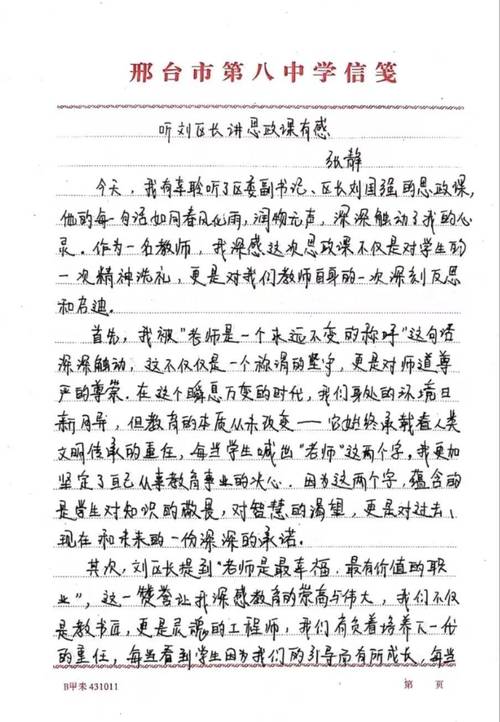 邢台市第八中学信笺
听刘区长讲思政课有感
张静
今天，我有幸聆听了区委副书记、区长刘国强的思政课，
他的每一句话如同春风化雨，润物无声，深深触动了我的心
灵。作为一名教师，我深感这次思政课不仅是对学生的
一次精神洗礼，更是对我们教师自身的一次深刻反思
和启迪。
首先，我被"老师是一个永远不变的称呼"这句话
深深触动，这不仅仅是一个称谓的坚守，更是对师道尊
严的尊崇。在这个瞬息万变的时代，我们身处的环境日
新月异，但教育的本质从未改变——它始终承载着人类
文明传承的重任，每当学生喊出"老师"这两个字，我更加
坚定了自己从事教育事业的决心。因为这两个字，蕴含的
是学生对知识的敬畏，对智慧的渴望，更是对过去、
现在和未来的一份深深的承诺。
其次，刘区长提到"老师是最幸福、最有价值的职
业"，这一赞誉让我深感教育的崇高与伟大，我们不仅
是教书匠，更是灵魂的工程师，我们肩负着培养下一代
的重任，每当看到学生因为我们的引导而有所成长，每当
B甲未 431011
第 页